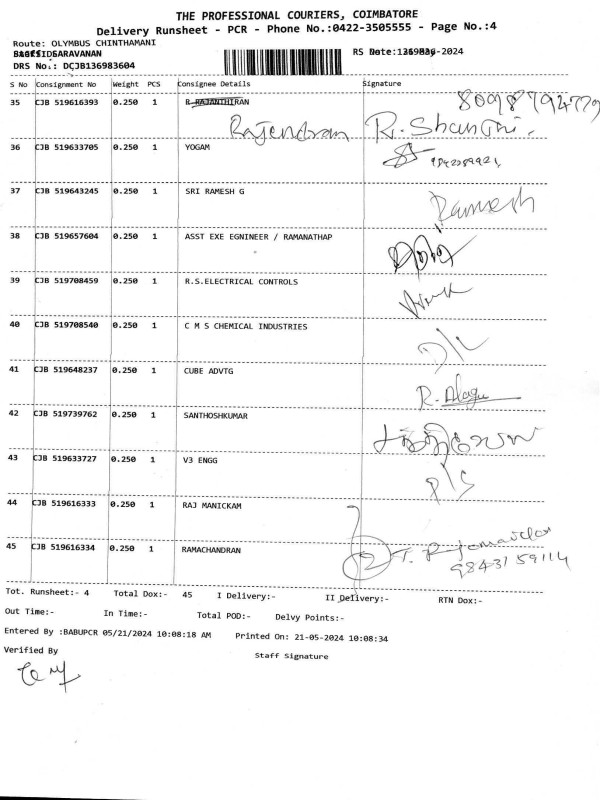 THE PROFESSIONAL COURIERS, COIMBATORE
Delivery Runsheet - PCR - Phone No.:0422-3505555 - Page No.:4
Route: OLYMBUS CHINTHAMANI
SARAVANAN
RS Date: -2024
DRS No.: DCJB136983604
S No Consignment No Weight PCS Consignee Details Signature
35 CJB 519616393 0.250 1 R RAJANTHIRAN
Rajendran R. Shanthi.
36 CJB 519633705 0.250 1 YOGAM
37 CJB 519643245 0.250 1 SRI RAMESH G Ramesh
38 CJB 519657604 0.250 1 ASST EXE EGNINEER / RAMANATHAP
39 CJB 519708459 0.250 1 R.S.ELECTRICAL CONTROLS
40 CJB 519708540 0.250 1 C M S CHEMICAL INDUSTRIES
41 CJB 519648237 0.250 1 CUBE ADVTG R. Alagu
42 CJB 519739762 0.250 1 SANTHOSHKUMAR
43 CJB 519633727 0.250 1 V3 ENGG P/S
44 CJB 519616333 0.250 1 RAJ MANICKAM
45 CJB 519616334 0.250 1 RAMACHANDRAN
98431 59114
Tot. Runsheet:- 4 Total Dox:- 45 I Delivery:- II Delivery:- RTN Dox:-
Out Time:- In Time:- Total POD:- Delvy Points:-
Entered By :BABUPCR 05/21/2024 10:08:18 AM Printed On: 21-05-2024 10:08:34
Verified By Staff Signature